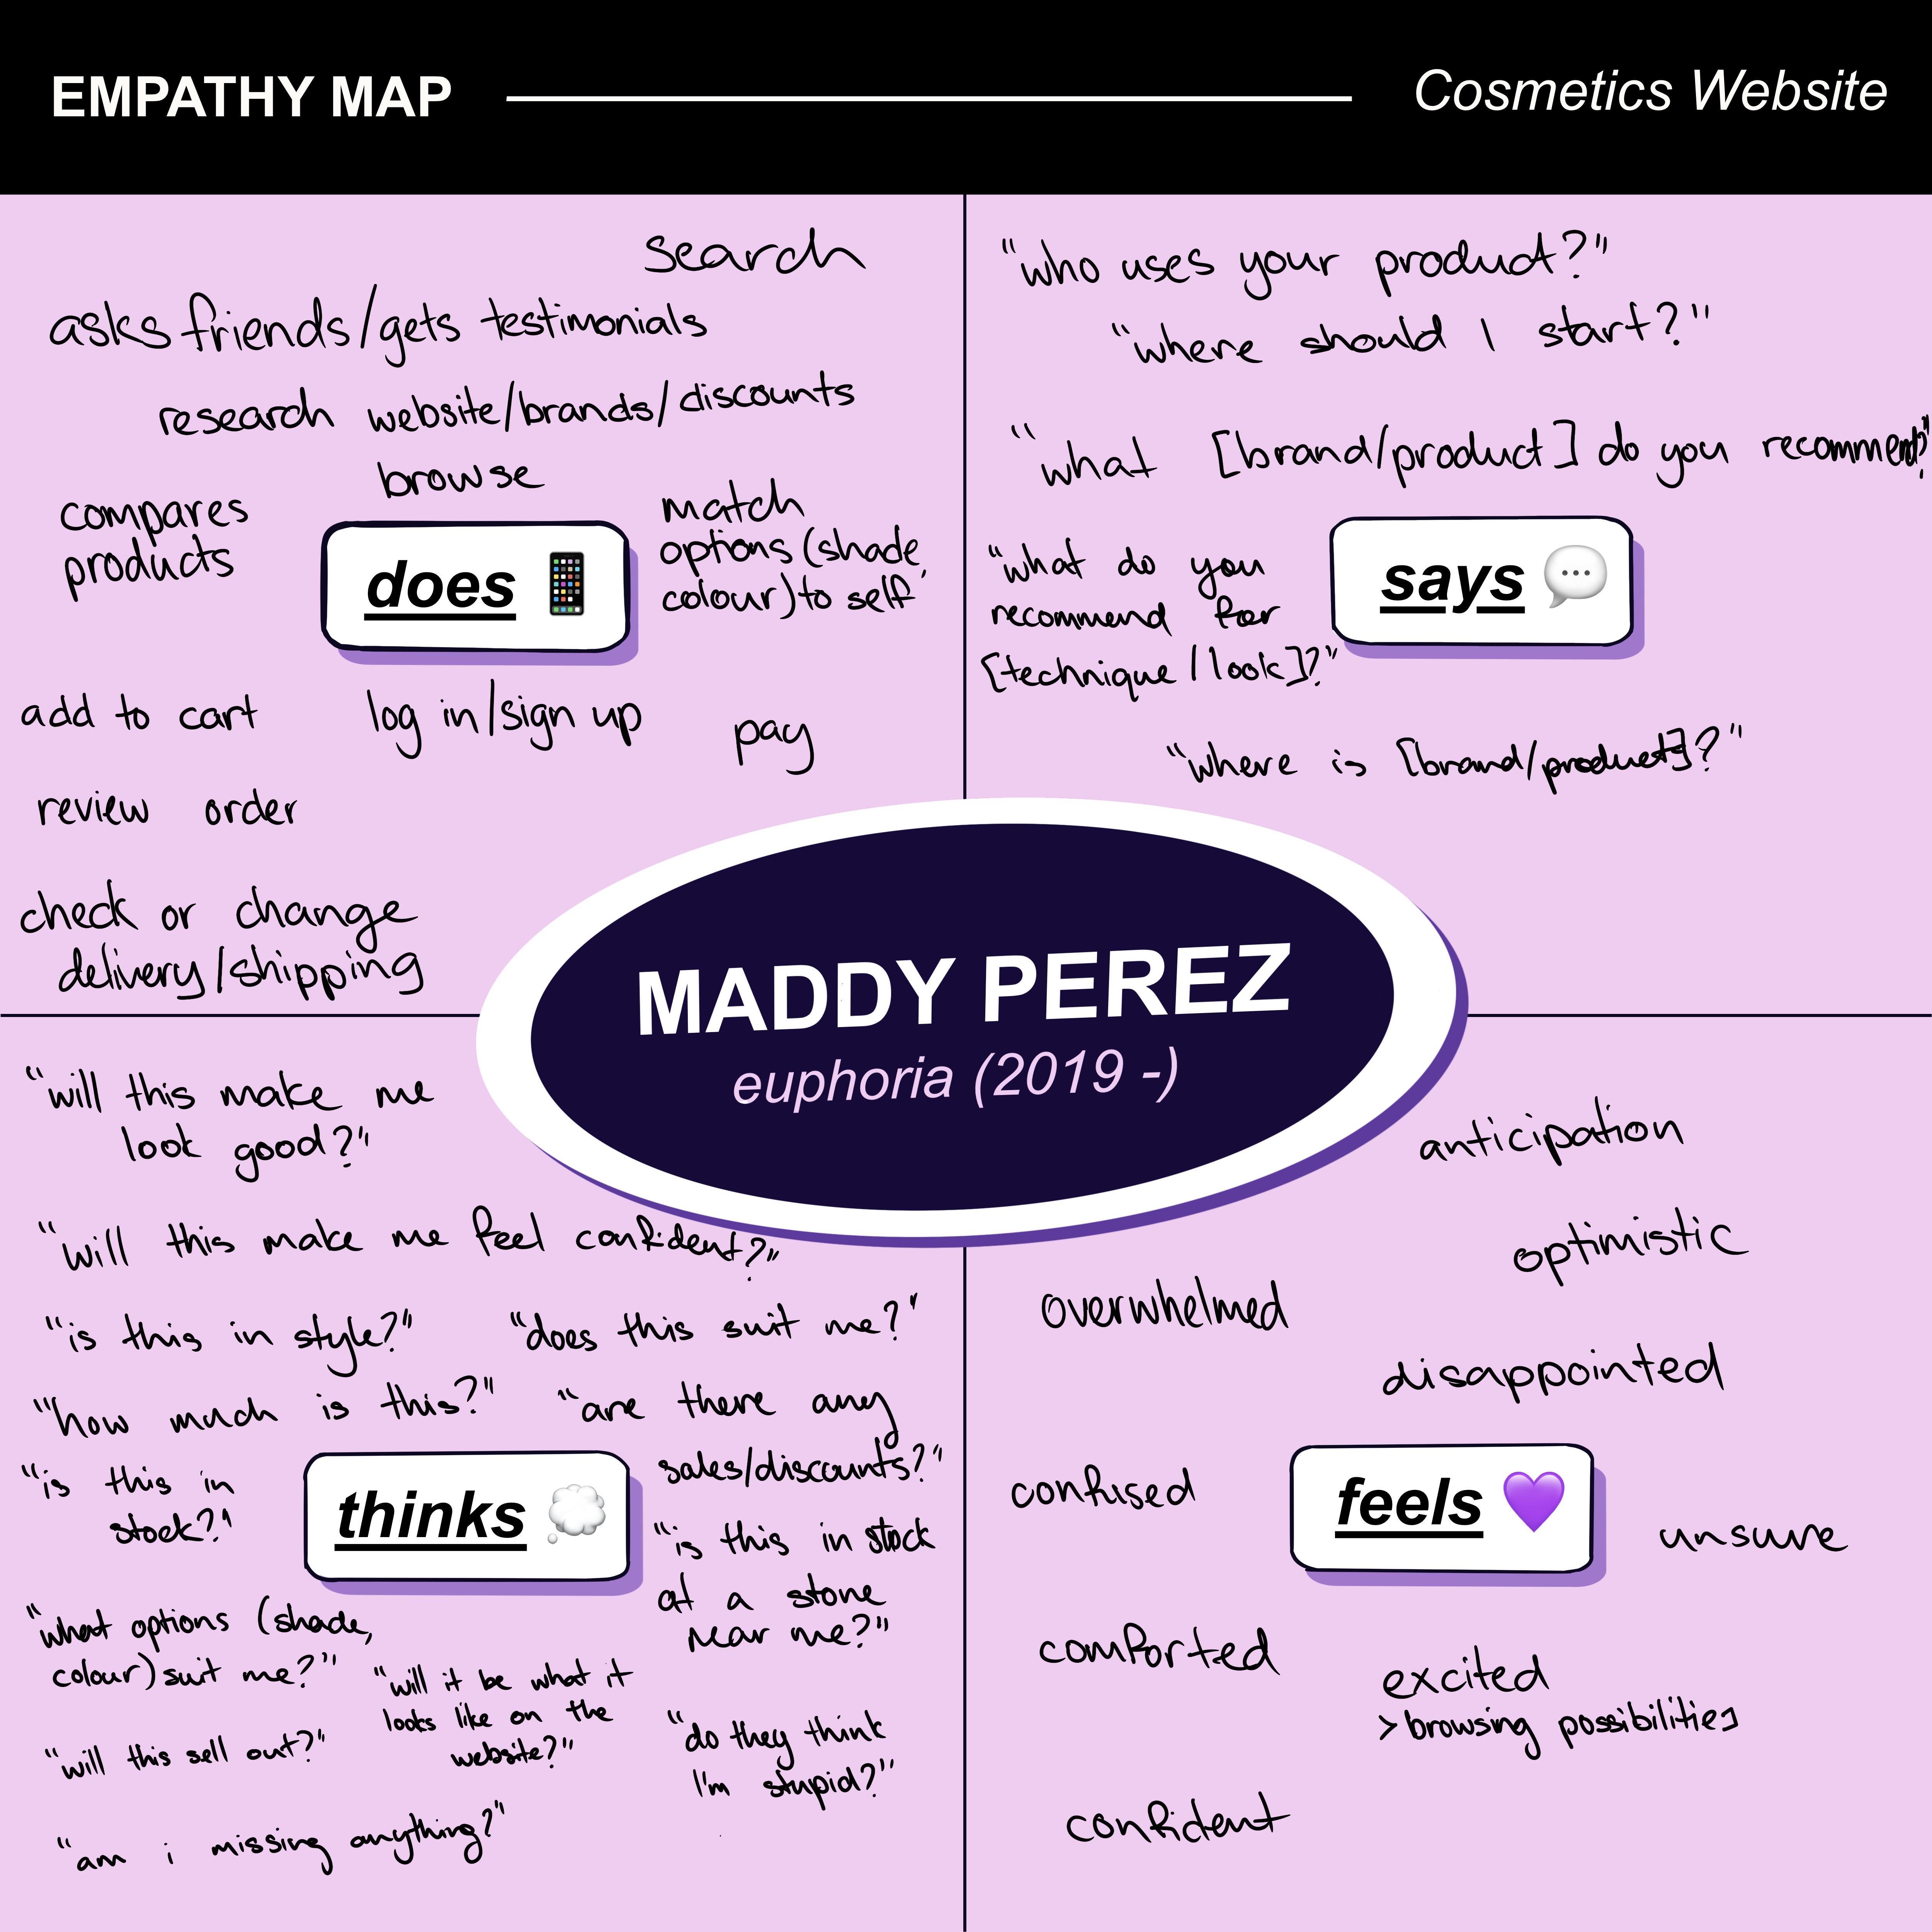 EMPATHY MAP
Cosmetics Website
search
asks friends/gets testimonials
research website/brands/discounts
browse
compares
products
match
options (shade,
colour) to self
does
add to cart
log in/sign up
pay
review order
check or change
delivery/shipping
"who uses your product?"
"where should I start?"
"what [brand/product] do you recommend?"
"what do you
recommend for
[technique/look]?"
says
"where is [brand/product]?"
MADDY PEREZ
euphoria (2019 -)
"will this make me
look good?"
"will this make me feel confident?"
"is this in style?"
"does this suit me?"
"how much is this?"
"are there any
sales/discounts?"
"is this in
stock?"
thinks
"is this in stock
at a store
near me?"
"what options (shade,
colour) suit me?"
"will it be what it
looks like on the
website?"
"will this sell out?"
"do they think
I'm stupid?"
"am i missing anything?"
anticipation
optimistic
overwhelmed
disappointed
confused
feels
unsure
comforted
excited
>browsing possibilities
confident